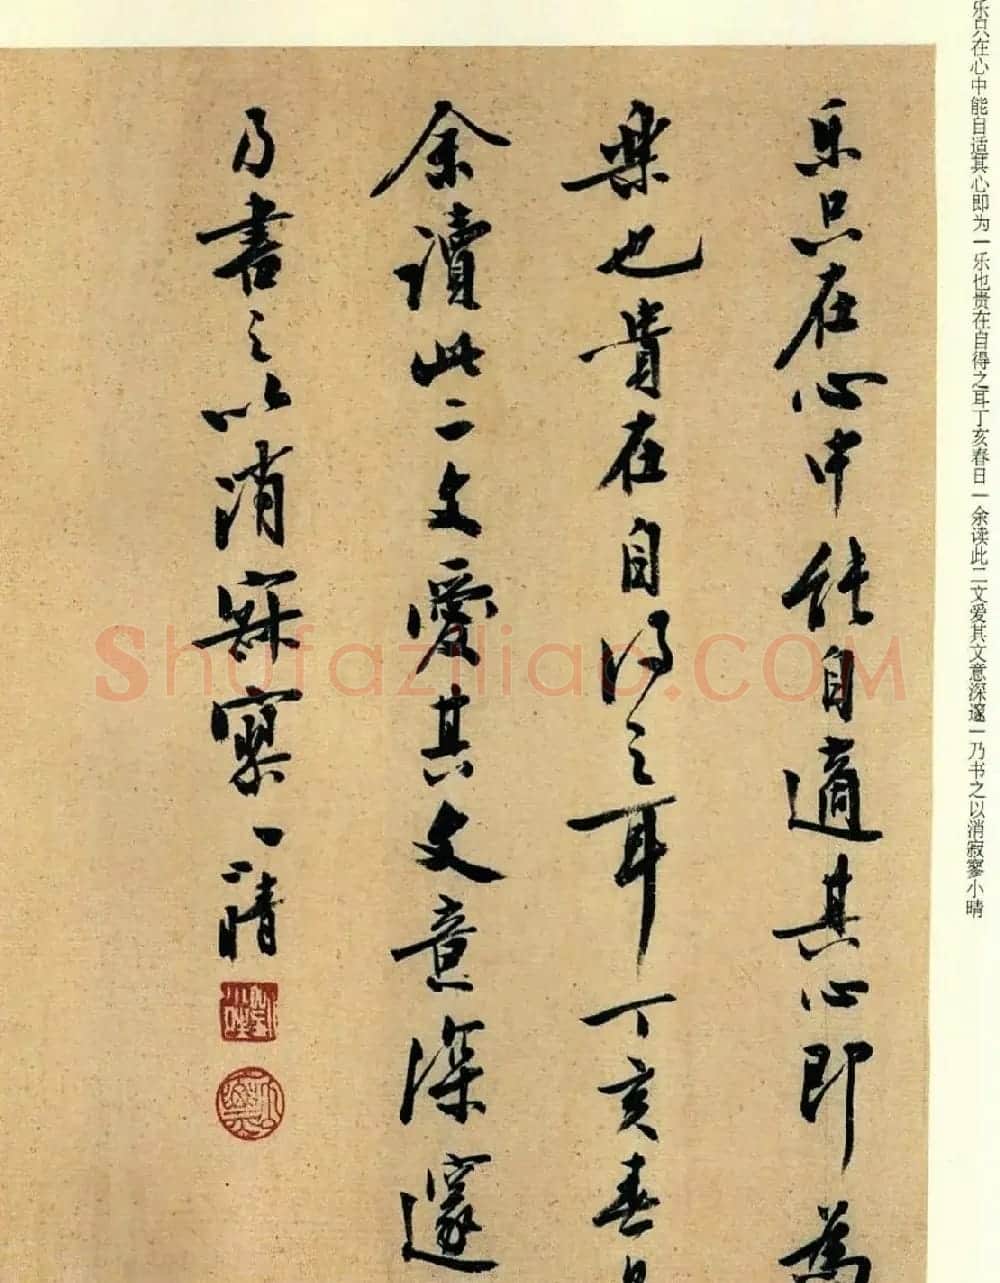 乐只在心中能自适其心即为一乐也贵在自得之耳丁亥春日一余读此二文爱其文意深邃一乃书之以消寂寥小晴
乐只在心中能自適其心即為
樂也貴在自得之耳丁亥春日
余讀此二文愛其文意深邃
乃書之以消寂寥小晴
Shufaziliao.COM